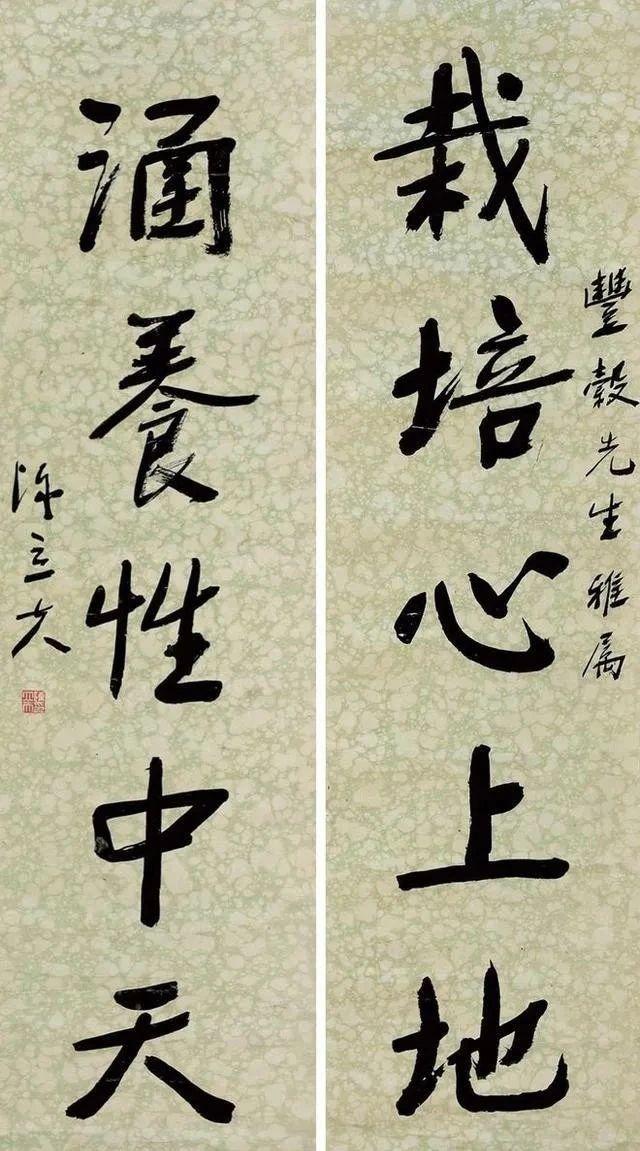 豐穀先生雅属
栽培心上地
涵養性中天
陳立夫